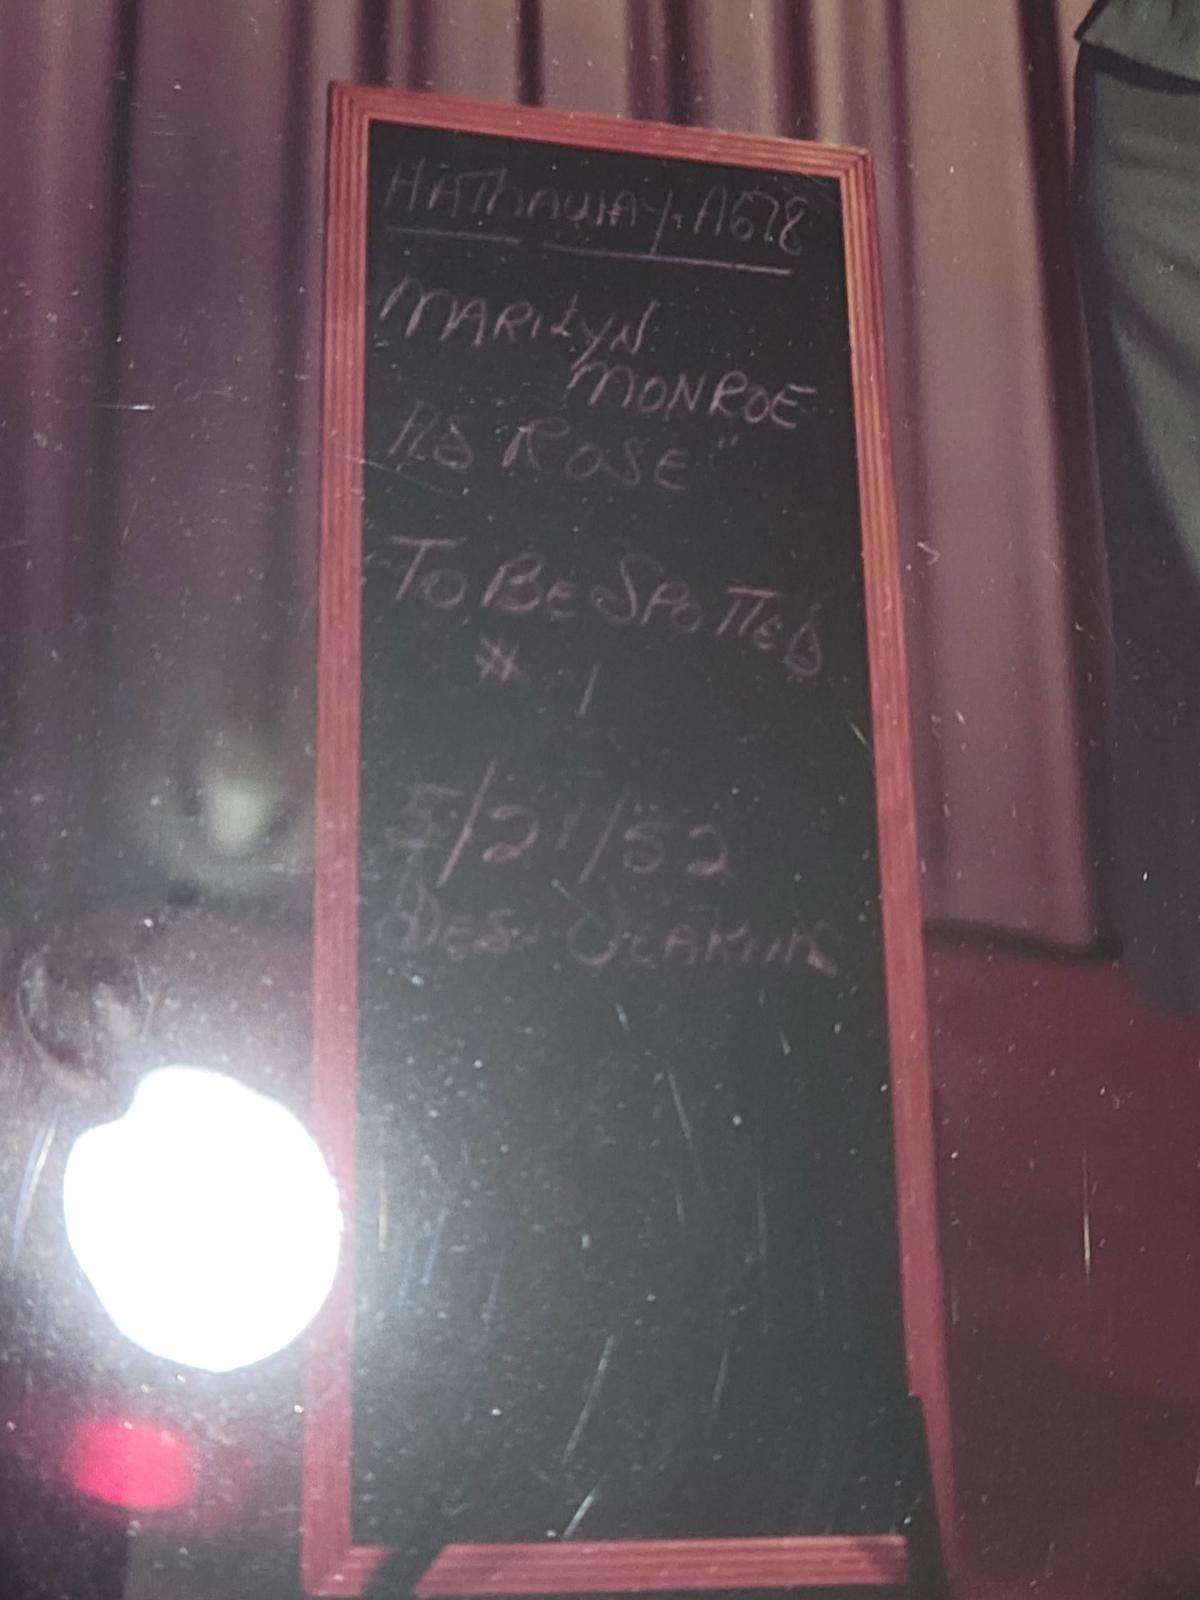 HATHAWAY-A678
MARILYN
MONROE
AS ROSE"
TO BE SPOTTED
# 1
5/21/52
DES-JEAKINS